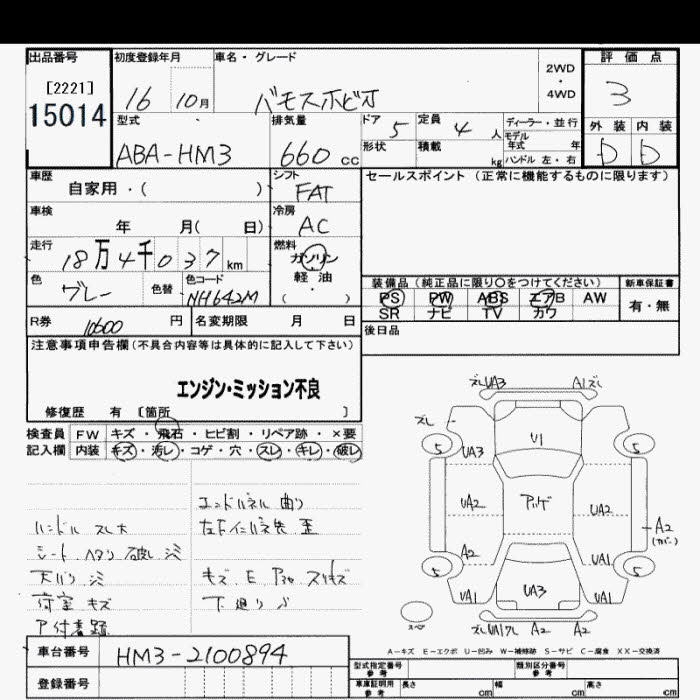 出品番号 初度登録年月 車名・グレード 2WD・4WD 評価点
[2221]
15014
16 10月 バモスホビオ 3
型式 排気量 ドア 5 定員 4 人 ディーラー・並行 外装 内装
ABA-HM3 660 cc 形状 積載 kg モデル年式 年 ハンドル 左・右 D D
車歴 シフト セールスポイント (正常に機能するものに限ります)
自家用・( ) FAT
車検 冷房
年 月( 日) AC
走行 燃料
18万4千037km ガソリン
色 色替 色コード 軽油
グレー NH642M ( ・ )
装備品 (純正品に限り○をつけてください) 新車保証書
PS PW ABS エアB AW 有・無
SR ナビ TV カワ
R券 10600 円 名変期限 月 日 後日品
注意事項申告欄(不具合内容等は具体的に記入して下さい)
エンジン・ミッション不良
修復歴 有 [箇所 ]
検査員 FW キズ・飛石・ヒビ割・リペア跡・×要
記入欄 内装 キズ・汚レ・コゲ・穴・スレ・キレ・破レ
エンドパネル 曲り
ハンドル スレ大
シート ヘタリ 破レ シミ
天バリ シミ
荷室 キズ キズ E
下廻り
ズレUA3 A1ズレ
ズレ
5 U1 5
UA3
UA2 UA2
A2 A2
(カバー)
5 UA1 5
UA1 UA3 UA1
スペア A2 A2
A-キズ E-エクボ U-凹み W-補修跡 S-サビ C-腐食 XX-交換済
車台番号 HM3-2100894
型式指定番号 参考 類別区分番号 参考
登録番号 車庫証明用 参考 長さ cm 幅 cm 高さ cm